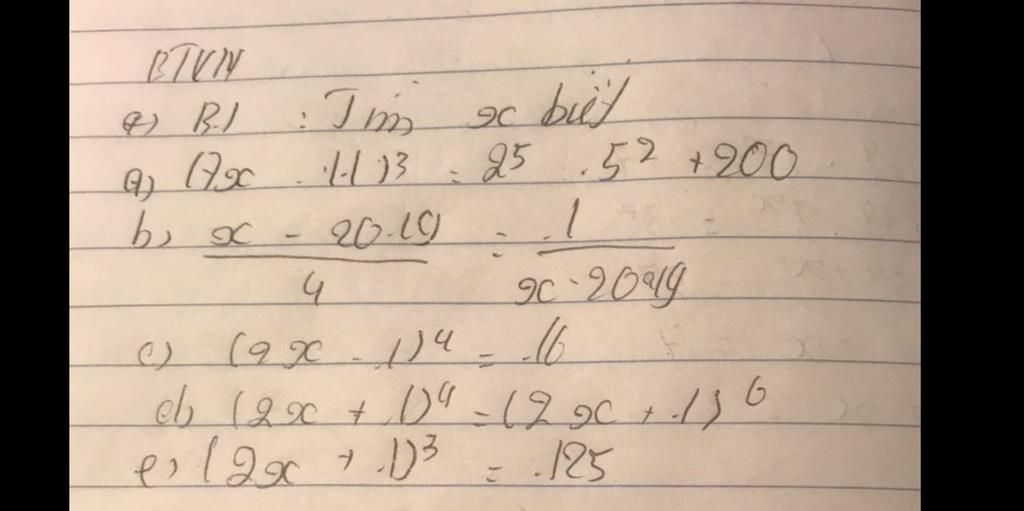 BTVN
a) B.1 : Tìm x biết
a) (7x - 11)³ = 2⁵ . 5² + 200
b) x - 2019 / 4 = 1 / x - 2019
c) (2x - 1)⁴ = 16
d) (2x + 1)⁴ = (2x + 1)⁶
e) (2x + 1)³ = 125